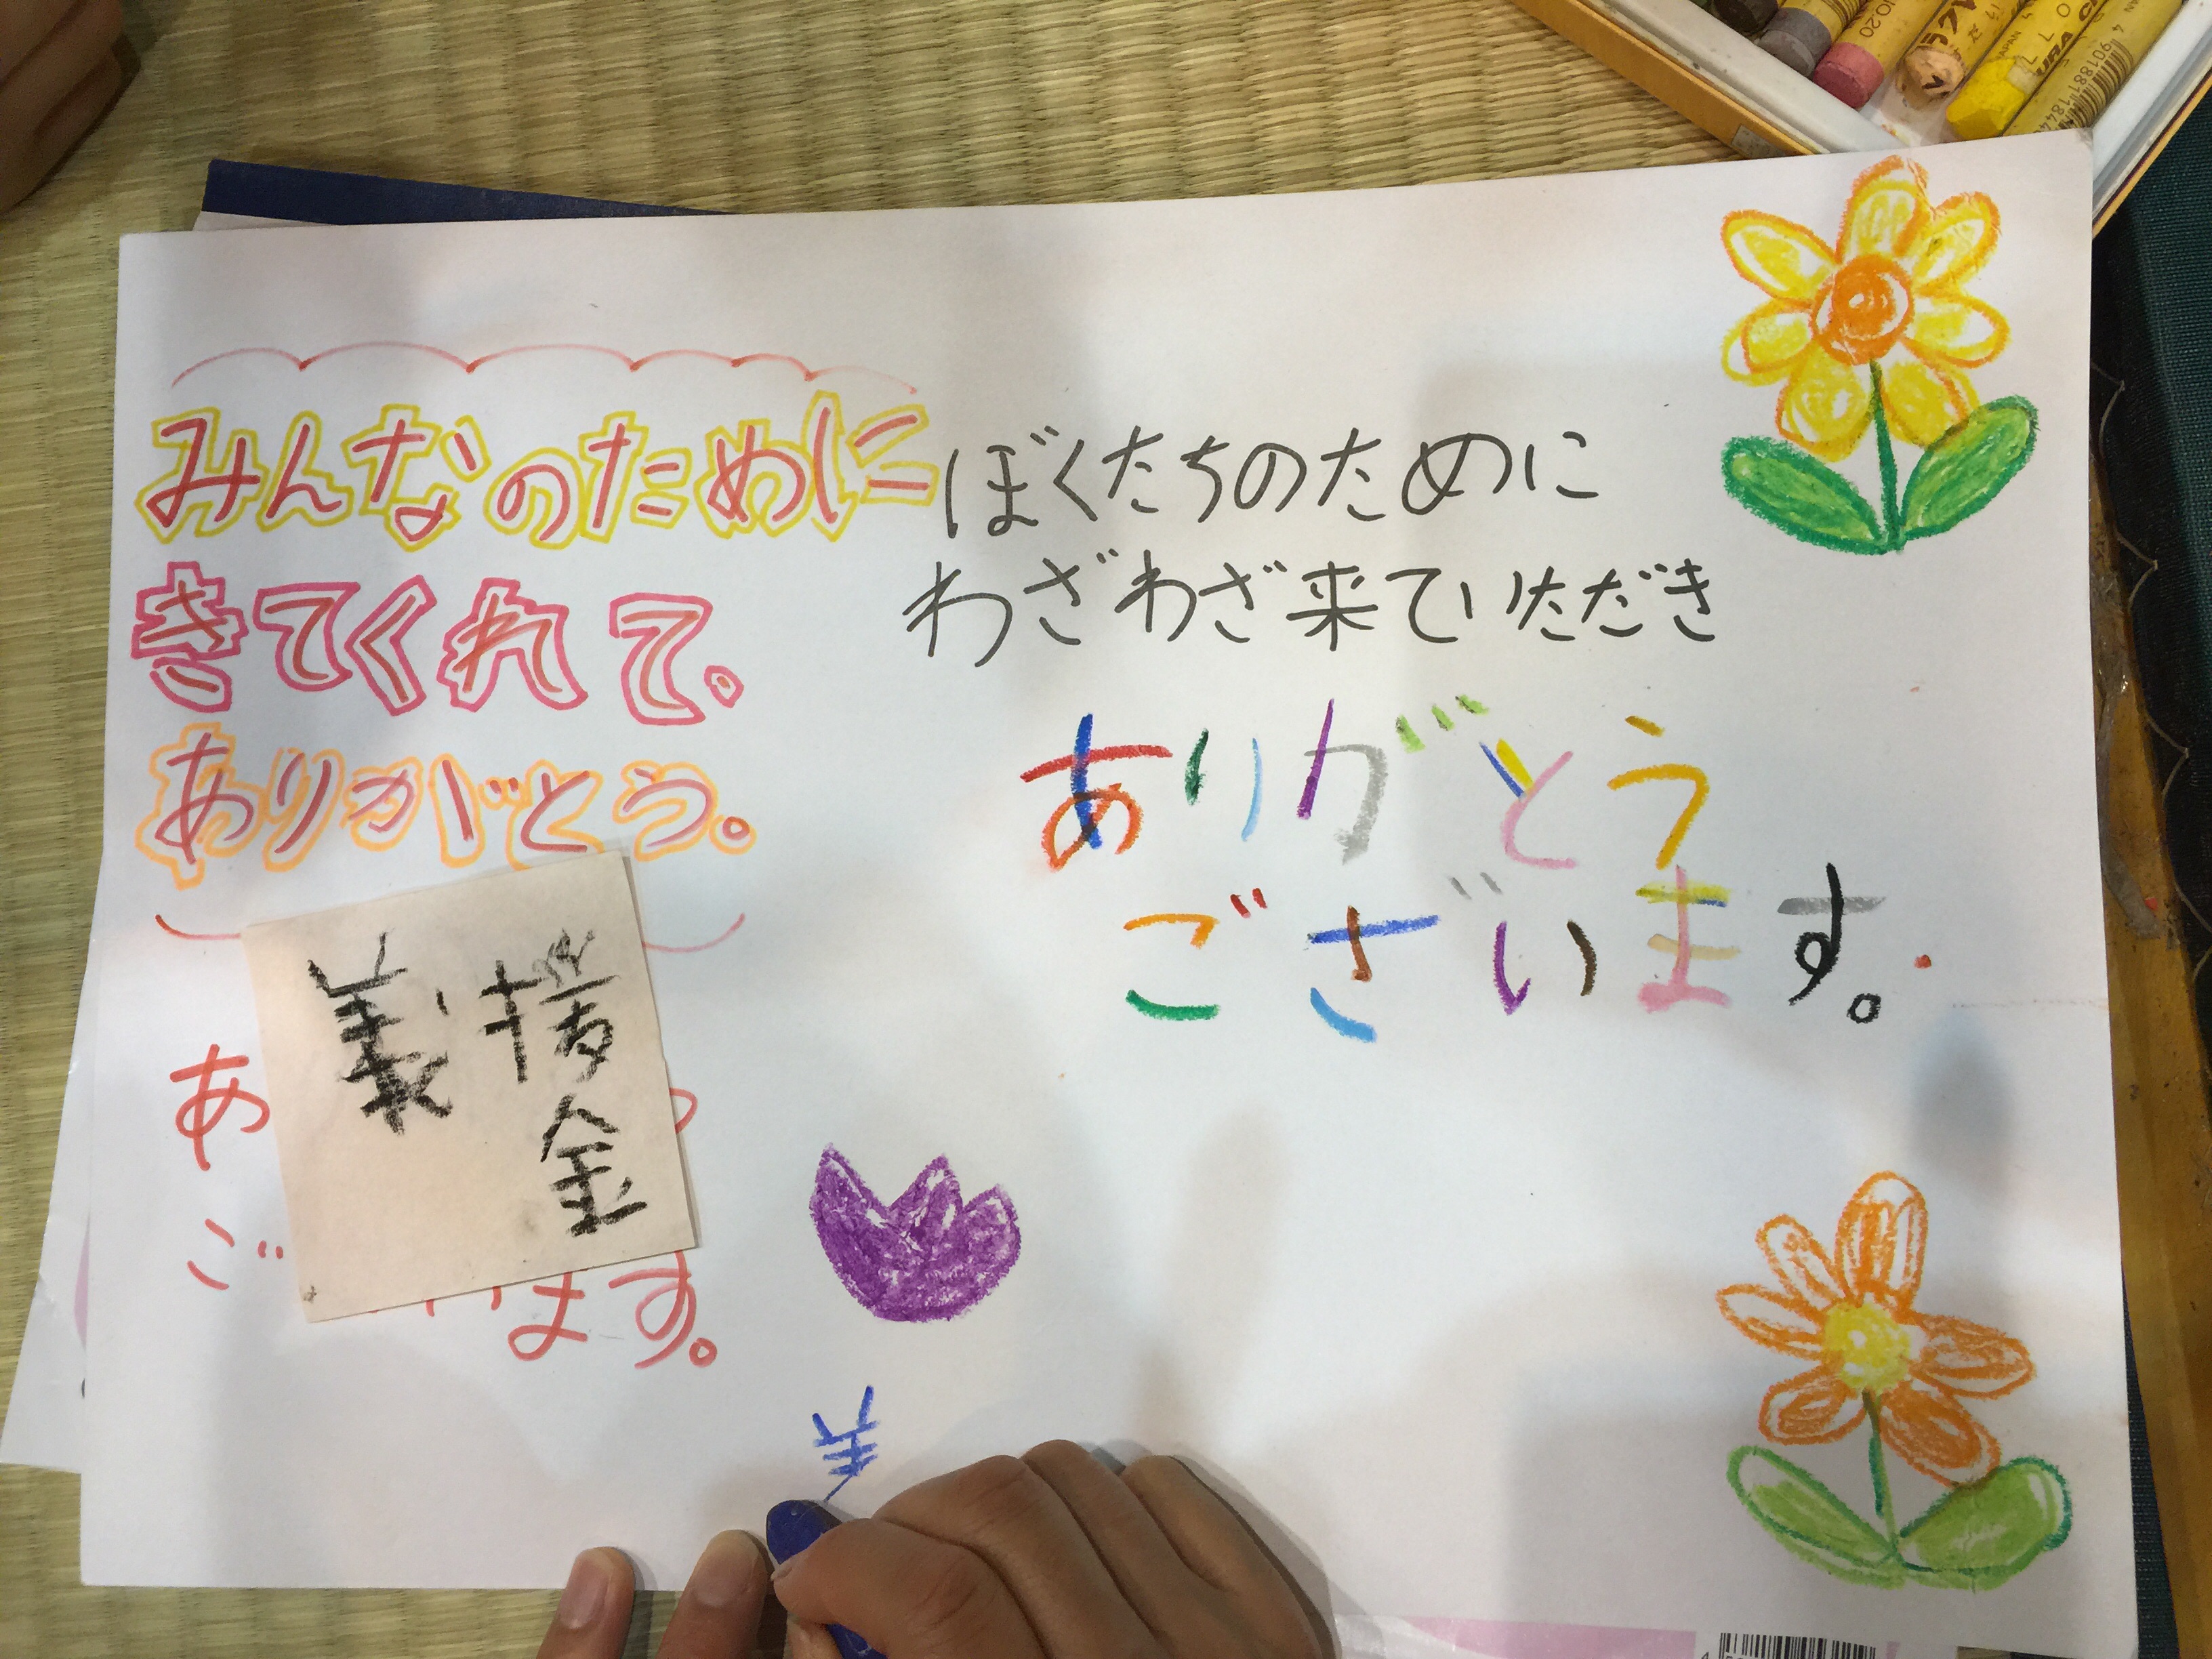 みんなのために
きてくれて、
ありがとう。
ぼくたちのために
わざわざ来ていただき
ありがとう
ございます。
義援金
あ
ご
ます。
NO.20
JAPAN